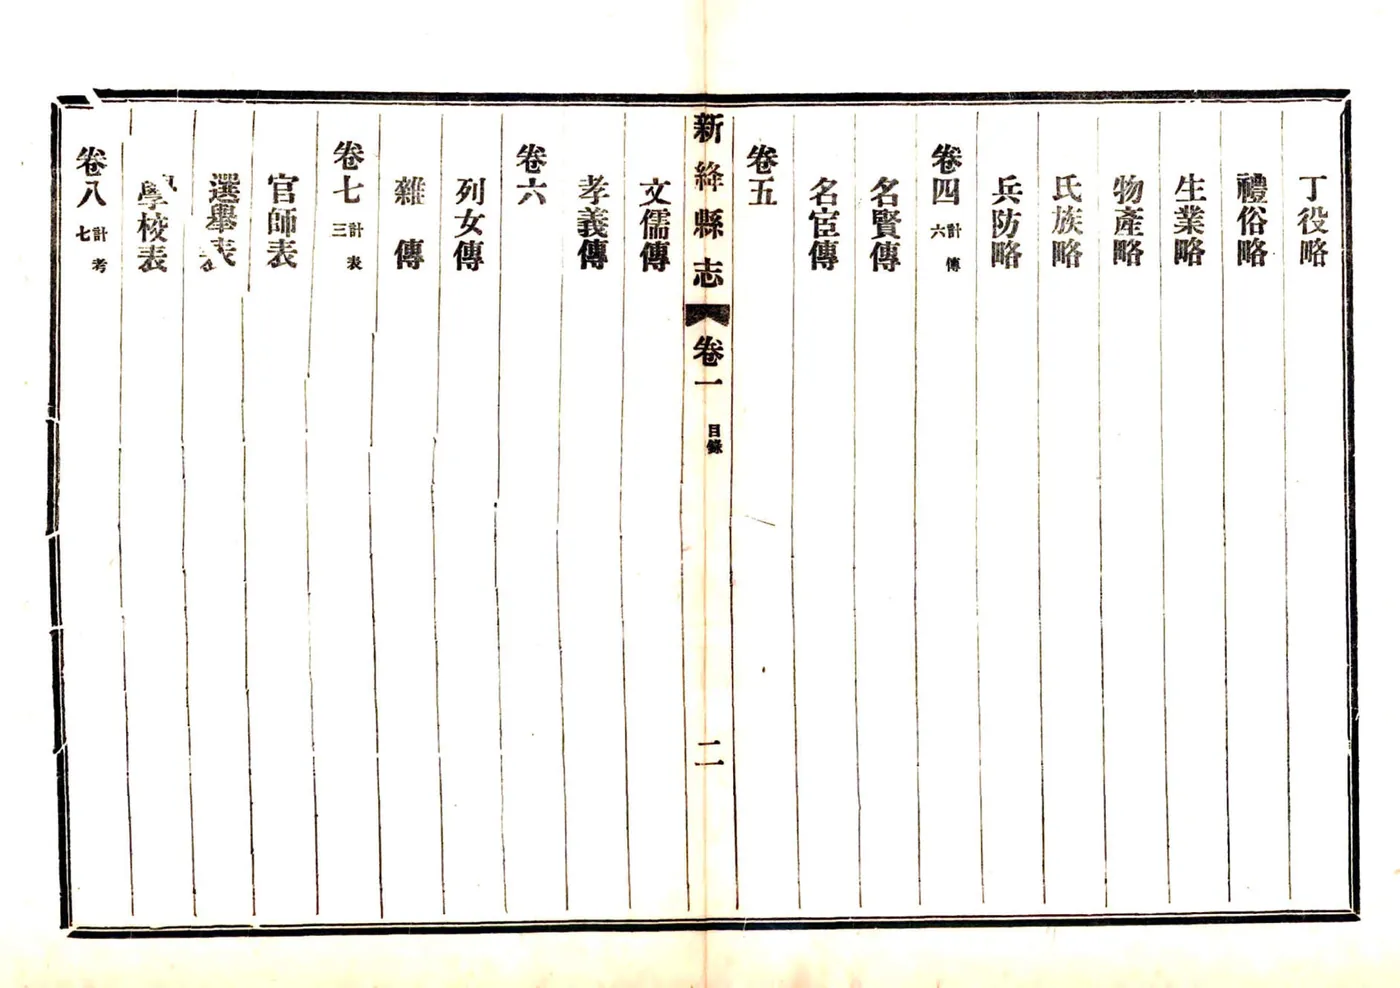 丁役略
禮俗略
生業略
物產略
氏族略
兵防略
卷四 計傳六
名賢傳
名宦傳
卷五
新絳縣志 卷一 目錄 二
文儒傳
孝義傳
卷六
列女傳
雜傳
卷七 計表三
官師表
選舉表
學校表
卷八 計考七